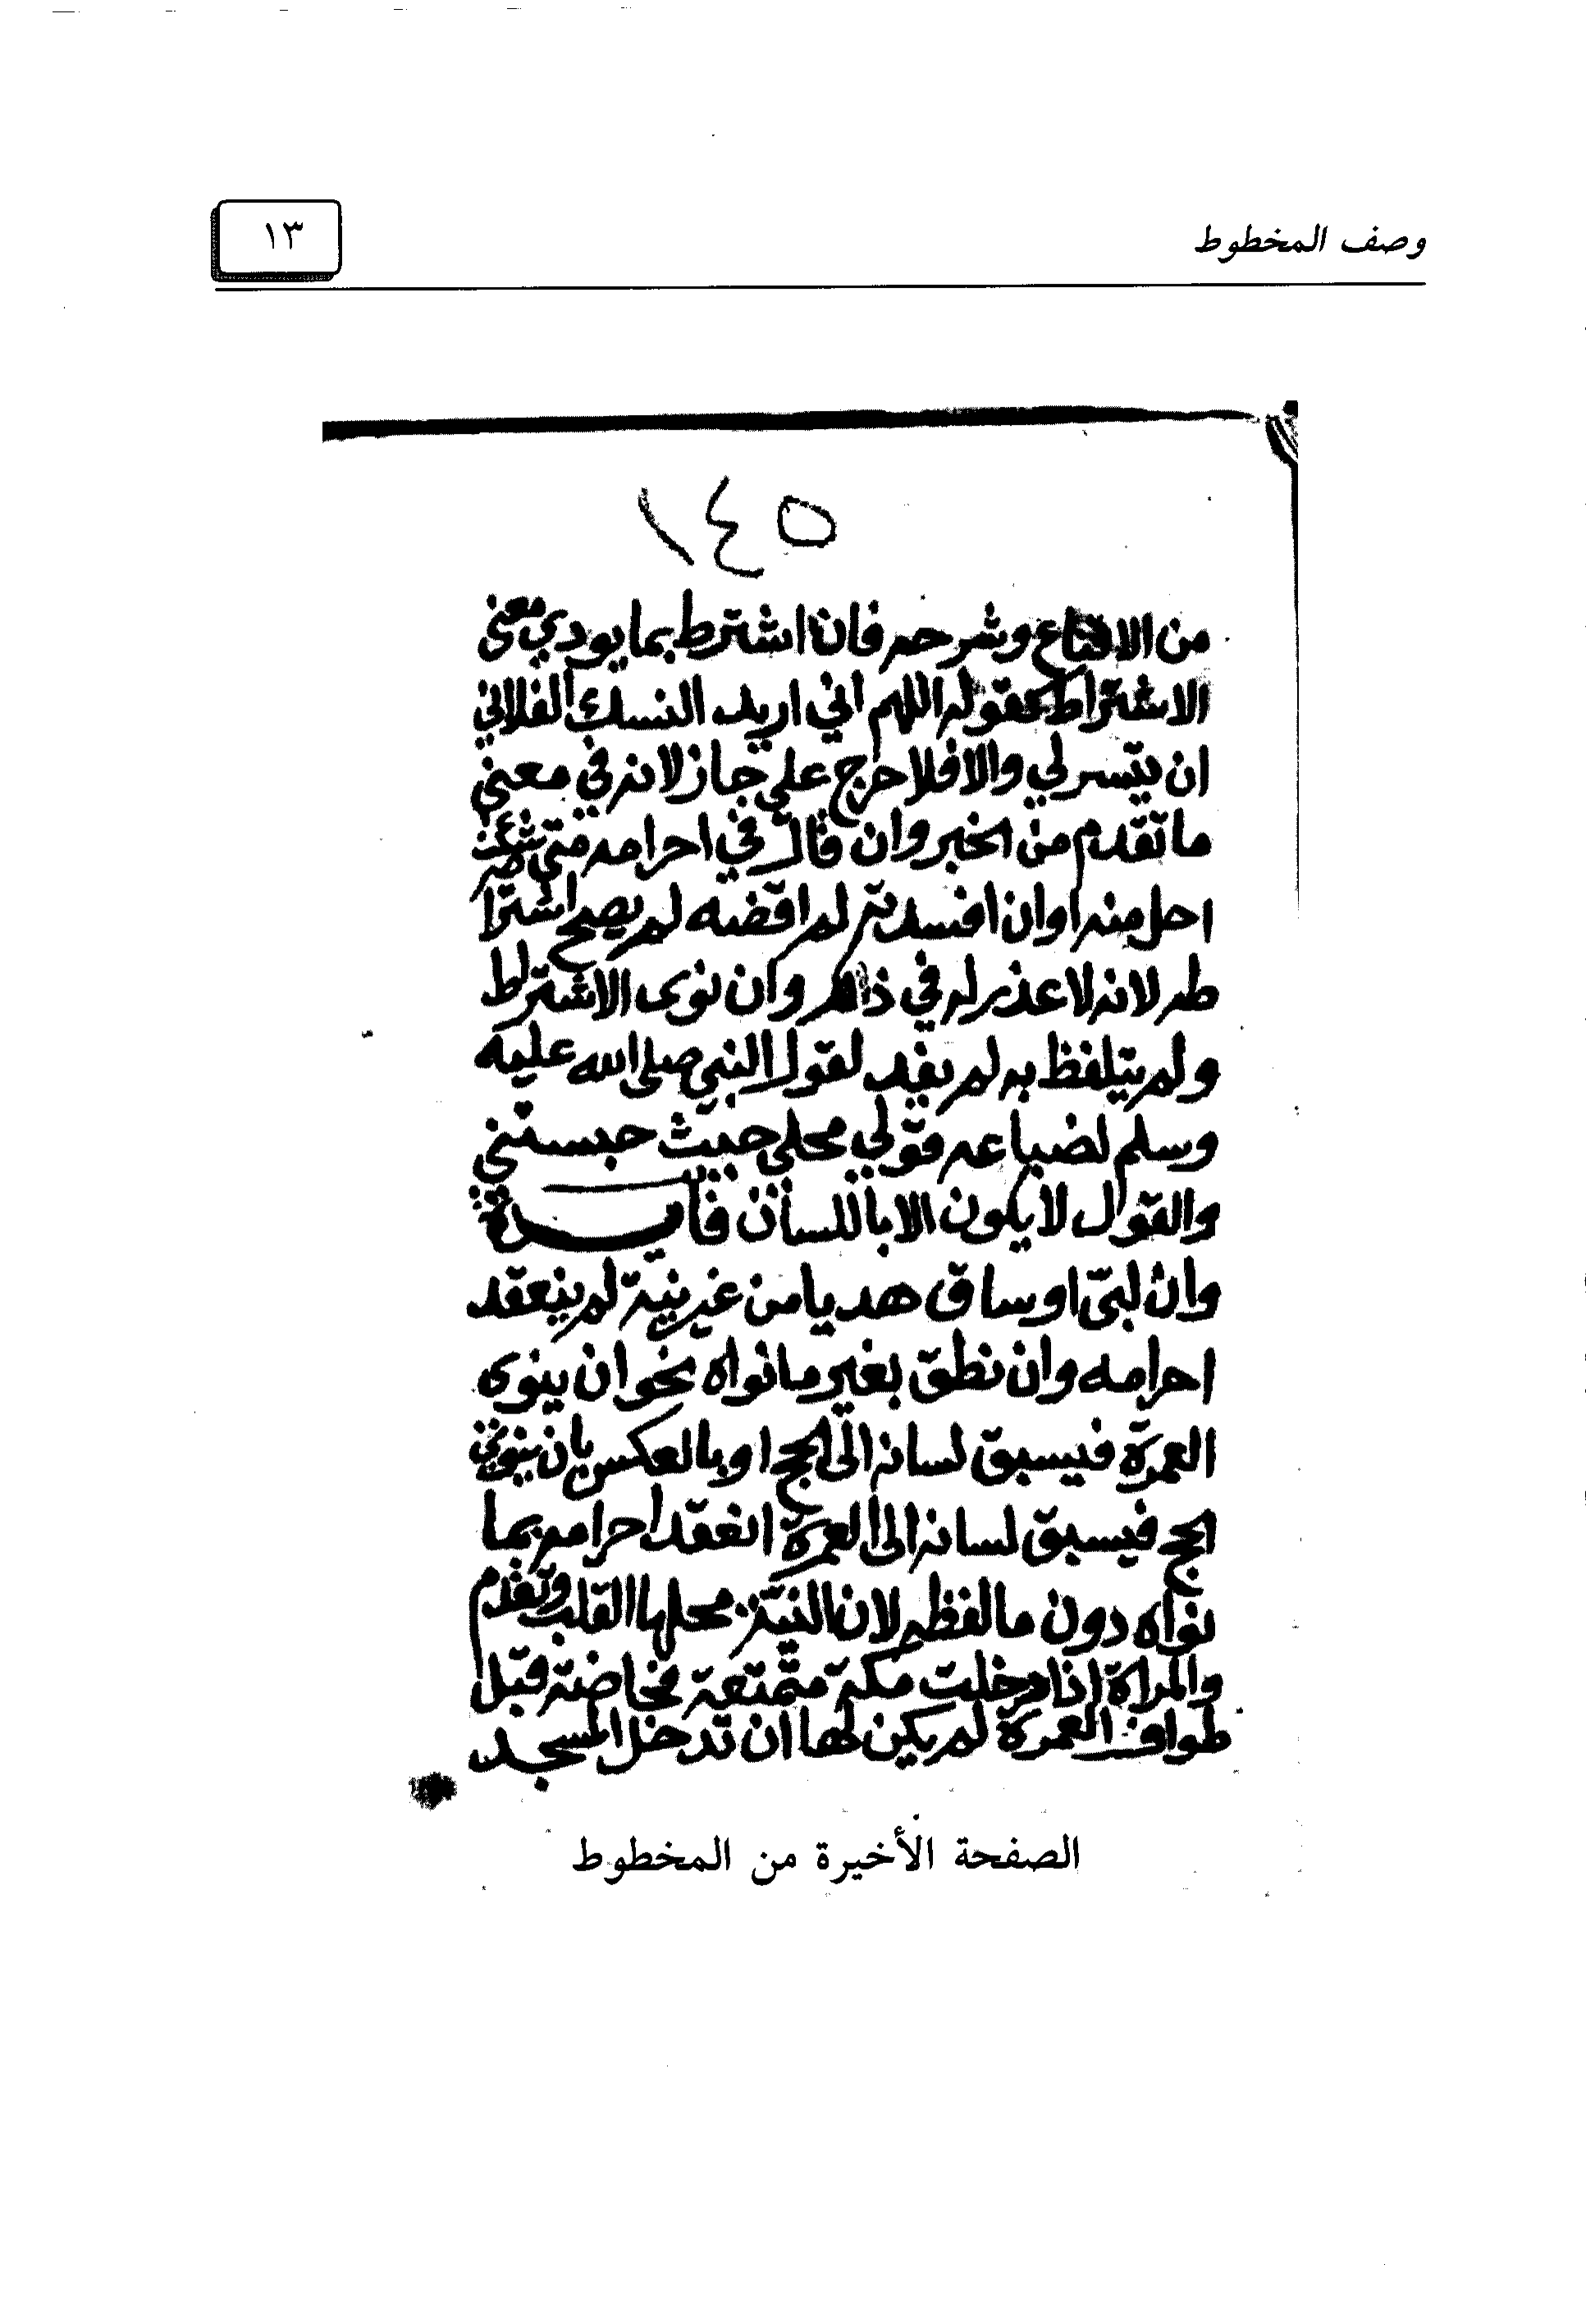 وصف المخطوط
١٣
١٤٥
من الاقناع وشرحه فان اشترط بما يودي معنى
الاشتراط كقوله اللهم اني اريد النسك الفلاني
ان تيسر لي والا فلا حرج علي جاز لانه في معنى
ما تقدم من الخبر وان قال في احرامه متى شئت
احل منه او ان افسدته لم اقضه لم يصح اشترا
طه لانه لا عذر له في ذلك وان نوى الاشترط
ولم يتلفظ به لم يفد لقول النبي صلى الله عليه
وسلم لضباعه قولي محلي حيث حبستني
والقول لا يكون الا باللسان فايدة
وان لبى او ساق هديا من غير نية لم ينعقد
احرامه وان نطق بغير ما نواه نحو ان ينوى
العمرة فيسبق لسانه الى الحج او بالعكس بان ينوي
الحج فيسبق لسانه الى العمرة انعقد احرامه بما
نواه دون ما لفظه لان النية محلها القلب وتقدم
والمراة اذا دخلت مكة متمتعة فحاضت قبل
طواف العمرة لم يكن لها ان تدخل المسجد
الصفحة الأخيرة من المخطوط